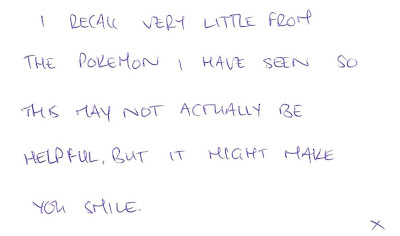 I RECALL VERY LITTLE FROM
THE POKEMON I HAVE SEEN SO
THIS MAY NOT ACTUALLY BE
HELPFUL, BUT IT MIGHT MAKE
YOU SMILE.
X